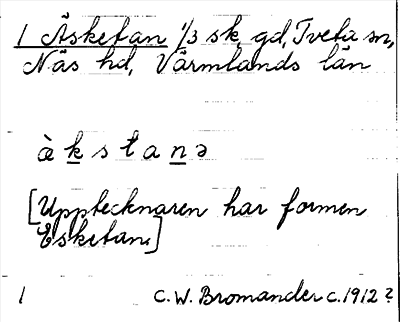 1 Äsketan 1/3 sk, gd, Tveta sn,
Näs hd, Värmlands län
àkstanə
[Upptecknaren har formen
Esketan.]
1 C. W. Bromander c. 1912?